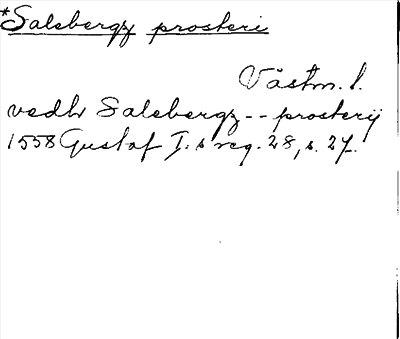 *Salebergz prosteri
Västm. l.
vedh Salebergz -- prosterij
1558 Gustaf I:s reg. 28, s. 27.